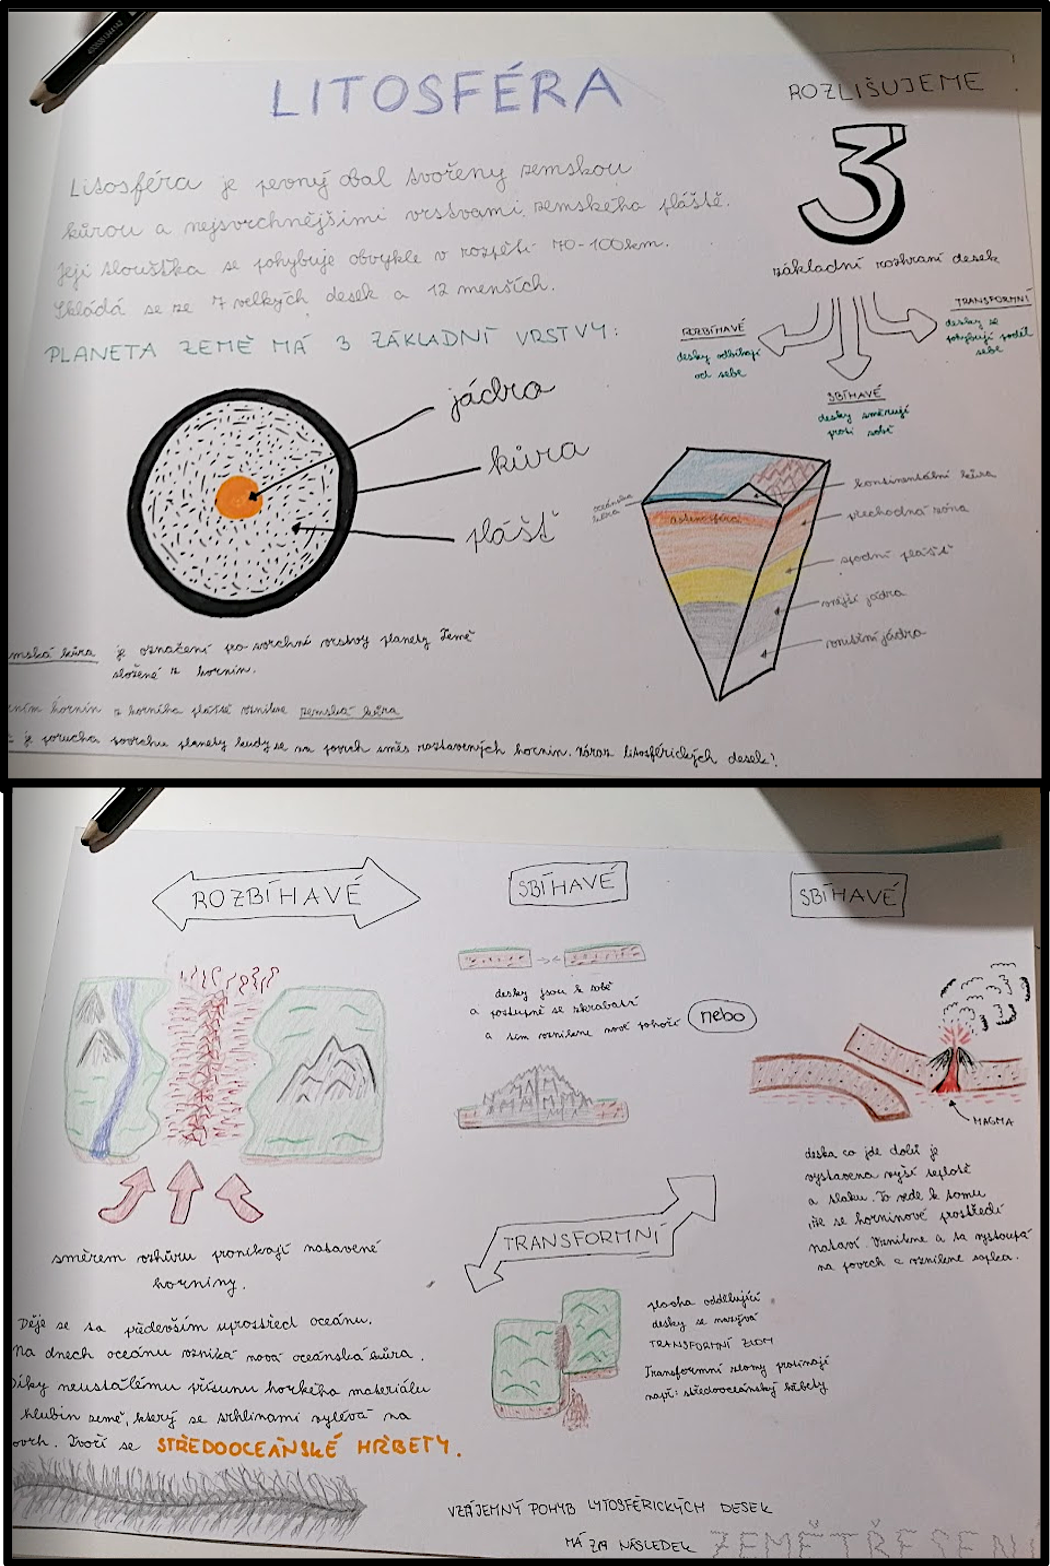 LITOSFÉRA
Litosféra je pevný obal tvořený zemskou
kůrou a nejsvrchnějšími vrstvami zemského pláště.
Její tloušťka se pohybuje obvykle v rozpětí 70-100km.
Skládá se ze 7 velkých desek a 12 menších.
PLANETA ZEMĚ MÁ 3 ZÁKLADNÍ VRSTVY:
jádro
kůra
plášť
ROZLIŠUJEME
3
základní rozhraní desek
ROZBÍHAVÉ
desky odbíhají
od sebe
SBÍHAVÉ
desky směřují
proti sobě
TRANSFORMNÍ
desky se
pohybují podél
sebe
oceánská
kůra
astenosféra
kontinentální kůra
přechodná zóna
spodní plášť
vnější jádro
vnitřní jádro
mská kůra je označení pro svrchní vrstvy planety Země
složené z hornin.
ním hornin z horního pláště vznikne zemská kůra
je porucha povrchu planety kudy se na povrch směs roztavených hornin. litosférických desek?
ROZBÍHAVÉ
směrem vzhůru pronikají natavené
horniny.
Děje se to především uprostřed oceánu.
Na dnech oceánu vzniká nová oceánská kůra.
Díky neustálému přísunu horkého materiálu
hlubin země, který se trhlinami vylévá na
ovrch. Tvoří se STŘEDOOCEÁNSKÉ HŘBETY.
SBÍHAVÉ
desky jsou k sobě
a postupně se zkrabatí
a tím vznikne nové pohoří
nebo
SBÍHAVÉ
MAGMA
deska co jde dolů je
vystavena vyší teplotě
a tlaku. To vede k tomu
,že se horninové prostředí
nataví. Vznikne a ta vystoupá
na povrch a vznikne sopka.
TRANSFORMNÍ
plocha oddělující
desky se nazývá
TRANSFORMNÍ ZLOM
Transformní zlomy protínají
např: středooceánský hřbety
VZÁJEMNÝ POHYB LYTOSFÉRICKÝCH DESEK
MÁ ZA NÁSLEDEK ZEMĚTŘESENÍ